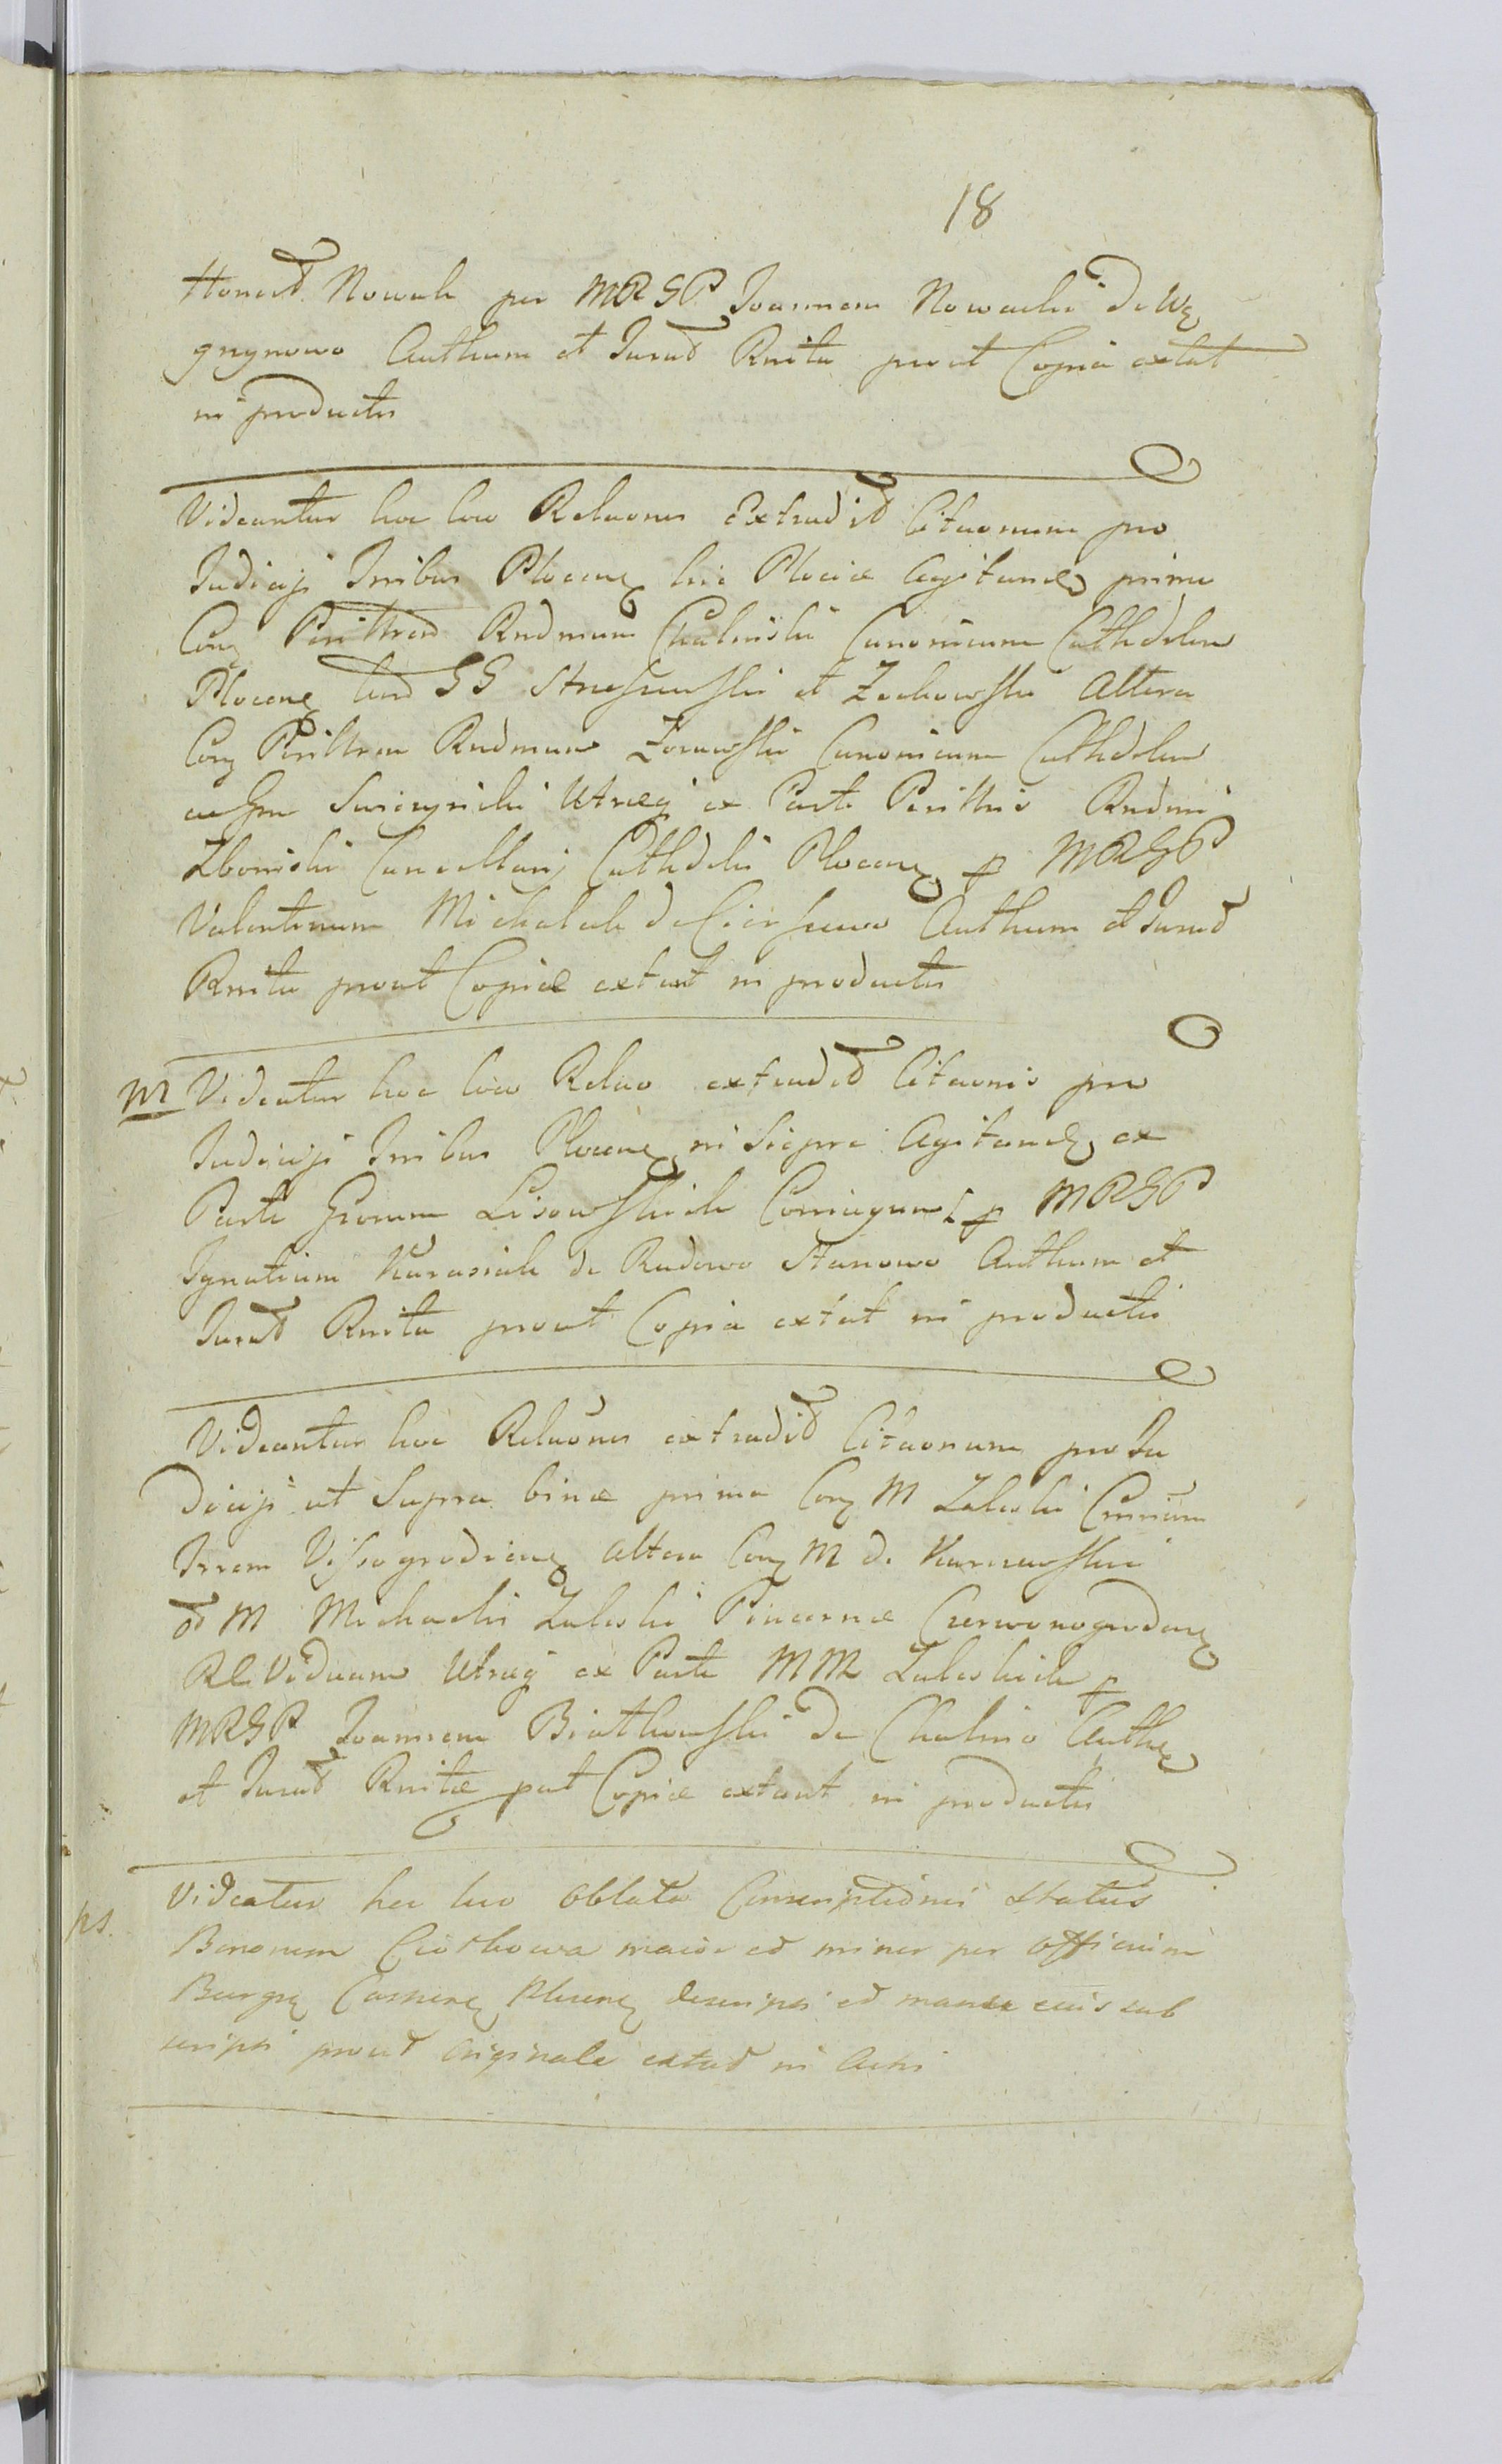 18
Honest Nowak per MRGP Joannem Nowacki de Wę
grzynowo Authum et Jurat Rnita prout Copia extat
in productis
Videantur hoc loco Relaones Extradit Citaonum pro
Judicijs Trribus Plocen hic Plociæ Agitand prima
Con Perillrem Rndmum Chaliński Canonicum Cathdralem
Plocen tum GG et Zochowski Altera
Con Perillrem Rndmum Żórawski Canonicum Cathdralem
ac Utræq ex Parte Perillris Rndmi
Zboiński Cancellarij Cathdralis Plocen p MRGP
Valentinum Michalak de Authum et Jurat
Rnita prout Copiæ extant in productis
M Videatur hoc loco Relao extradit Citaonis pro
Judicijs Trribus Plocen in Sieprc Agitand ex
Parte Grorum Lisowskich Conjugum p MRGP
Ignatium Karasiak de Rudowo Authum et
Jurat Rnita prout Copia extat in productis
Videantur hoc Relaones extradit Citaonum pro Ju
dicijs ut Supra binæ prima Con M Zaleski
Trrem Vissogrodien altera Con M de Karnewskie
od M Michaelis Zaleski Pincernæ Czerwonogroden
Rel Viduam Utræq ex Parte MM Zaleskich p
MRGP Joannem Białkowski de Chalino Auth
et Jurat Rnitæ put Copiæ extant in productis
ps. Videatur hoc loco Oblata Conscriptionis Status
Bonorum Ciołkowa maior et minor per Officium
Burg Castren Plocen descripti et manu eius sub
scripti prout Originale extat in Actis